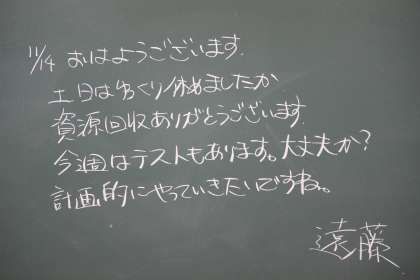 11/14 おはようございます.
土日はゆっくり休めましたか
資源回収ありがとうございます.
今週はテストもあります。大丈夫か?
計画的にやっていきたいですね。
遠藤